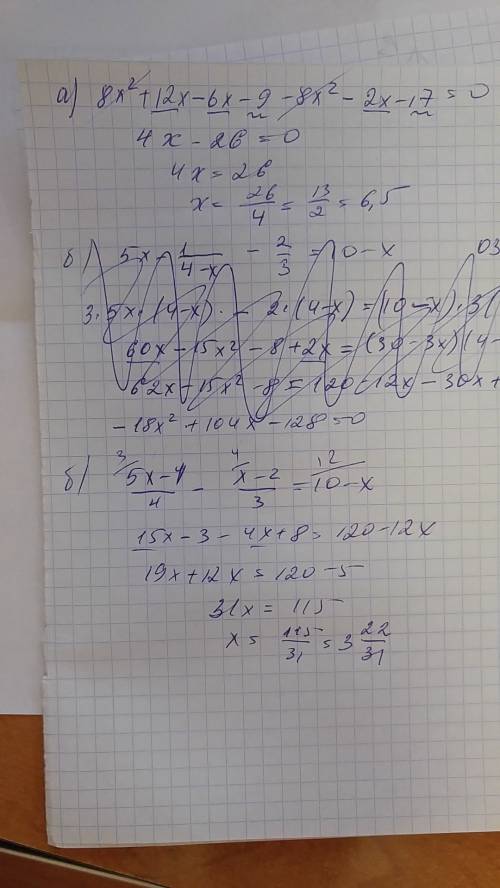 а) 8x² + 12x - 6x - 9 - 8x² - 2x - 17 = 0
4x - 26 = 0
4x = 26
x = 26/4 = 13/2 = 6,5
б) 5x - 1/(4-x) - 2/3 = 10 - x ОЗ
3·5x·(4-x) · - 2·(4-x) = (10-x)·3(
60x - 15x² - 8 + 2x = (30-3x)(4-
62x - 15x² - 8 = 120 - 12x - 30x +
-18x² + 104x - 128 = 0
б) ³/ (5x-1)/4 - ⁴/ (x-2)/3 = ¹²/ 10-x
15x - 3 - 4x + 8 = 120 - 12x
19x + 12x = 120 - 5
31x = 115
x = 115/31 = 3 22/31